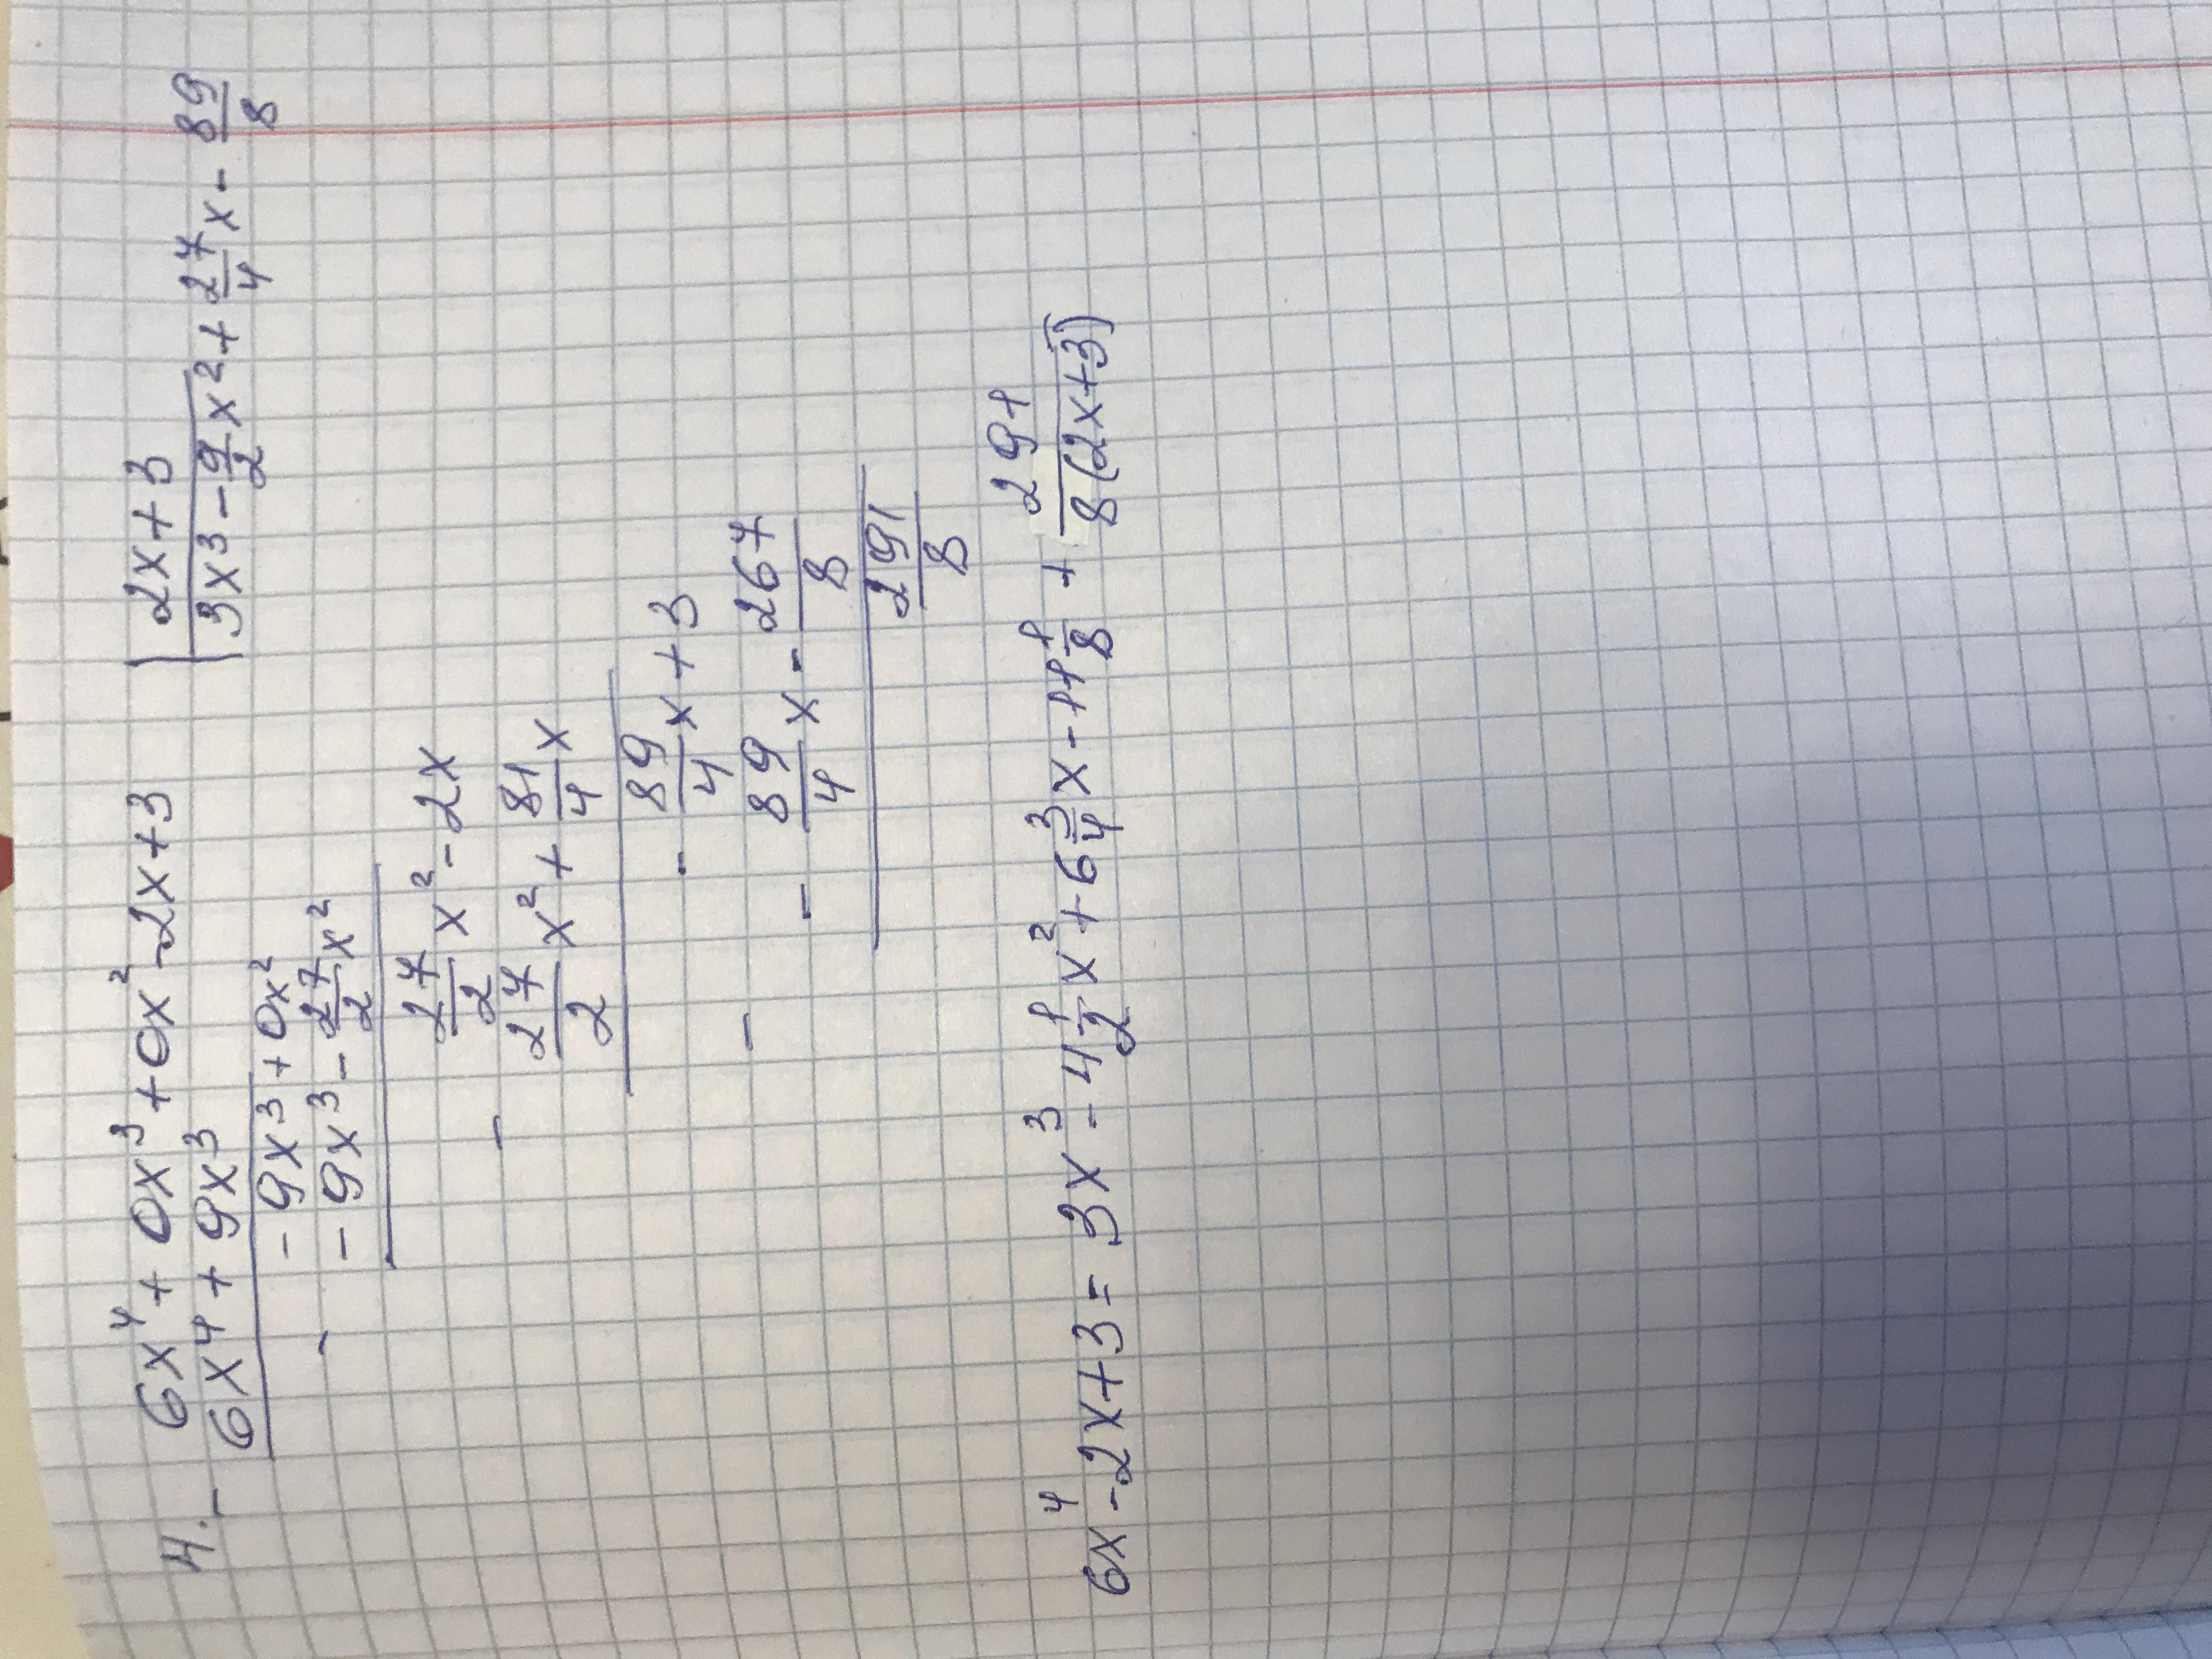 4. - 6x⁴ + 0x³ + 0x² - 2x + 3 | 2x + 3
6x⁴ + 9x³ | 3x³ - 9/2 x² + 27/4 x - 89/8
- 9x³ + 0x²
- - 9x³ - 27/2 x²
27/2 x² - 2x
- 27/2 x² + 81/4 x
- 89/4 x + 3
- - 89/4 x - 267/8
291/8
6x⁴ - 2x + 3 = 3x³ - 4 1/2 x² + 6 3/4 x - 11 1/8 + 291/8(2x+3)